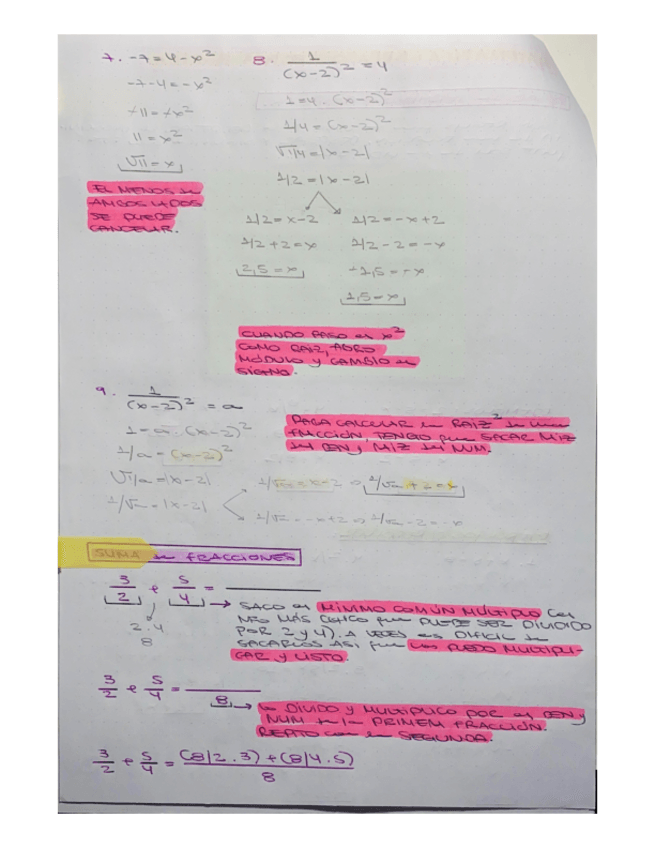 7. -7=4-x²
-7-4=-x²
-11=-x²
11=x²
√11=x
EL MENOS en
AMBOS LADOS
SE PUEDE
CANCELAR.
8. 1/(x-2)² =4
1=4.(x-2)²
1/4=(x-2)²
√1/4=|x-2|
1/2=|x-2|
1/2=x-2 1/2=-x+2
1/2+2=x 1/2-2=-x
2,5=x -1,5=-x
1,5=x
CUANDO PASO el x²
COMO RAIZ, ABRO
MÓDULO y CAMBIO el
SIGNO.
9. 1/(x-2)² =a
1=a.(x-2)²
1/a=(x-2)²
√1/a=|x-2|
1/√a=|x-2|
1/√a=x-2 ⇒ 1/√a+2=x
1/√a=-x+2 ⇒ 1/√a-2=-x
PARA CALCULAR la RAIZ² de una
FRACCIÓN, TENGO que SACAR RAIZ
del DEN y RAIZ del NUM.
SUMA de FRACCIONES
3/2 + 5/4 =
2.4
8
→ SACO el MÍNIMO COMÚN MÚLTIPLO (el
NRO MÁS CHICO que PUEDE SER DIVIDIDO
POR 2 y 4). A VECES es DIFICIL de
SACARLOS ASI, que los PUEDO MULTIPLI-
CAR y LISTO.
3/2 + 5/4 = /8
→ lo DIVIDO y MULTIPLICO POR el DEN y
NUM de la PRIMERA FRACCIÓN.
REPITO con la SEGUNDA.
3/2 + 5/4 = (8/2.3)+(8/4.5)/8